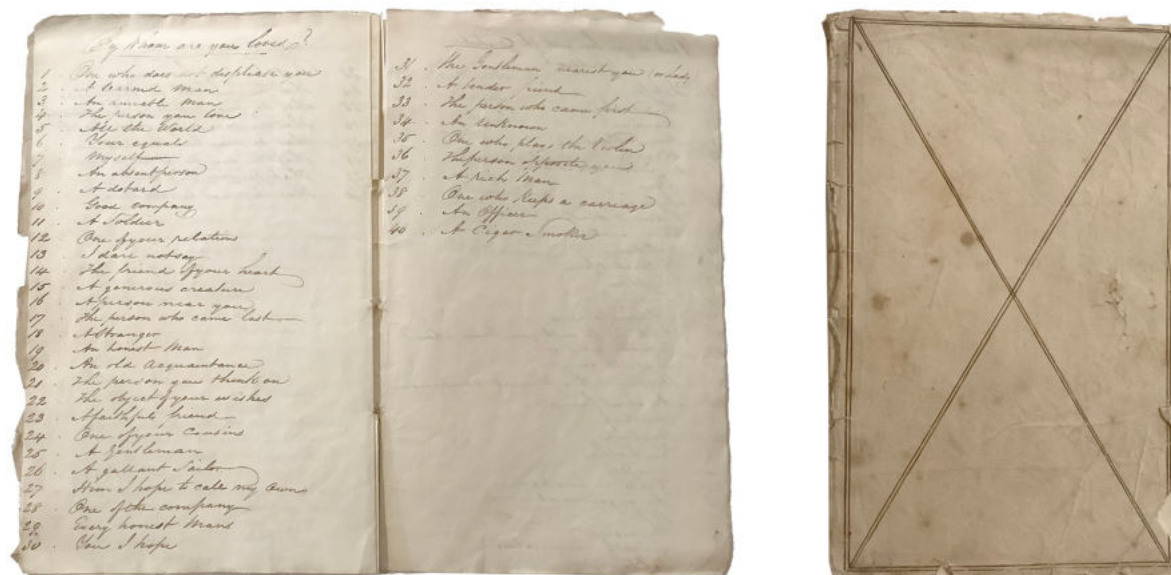 By Whom are you loved?
1 One who does not displease you
2 . A learned Man
3 . An amiable Man
4 . The person you love
5 . All the World
6 . Your equals
7 . Myself
8 . An absent person
9 . A dotard
10 . Good company
11 . A Soldier
12 . One of your relations
13 . I dare not say
14 . The friend of your heart
15 . A generous creature
16 . A person near you
17 . The person who came last
18 . A Stranger
19 . An honest Man
20 . An old acquaintance
21 . The person you think on
22 . The object of your wishes
23 . A faithful friend
24 . One of your Cousins
25 . A Gentleman
26 . A gallant Sailor
27 . Him I hope to call my own
28 . One of the company
29 . Every honest Man
30 . You I hope
31 . The Gentleman nearest you
32 . A tender friend
33 . The person who came first
34 . An Unknown
35 . One who plays the Violin
36 . The person opposite you
37 . A Rich Man
38 . One who keeps a carriage
39 . An Officer
40 . A Cigar Smoker